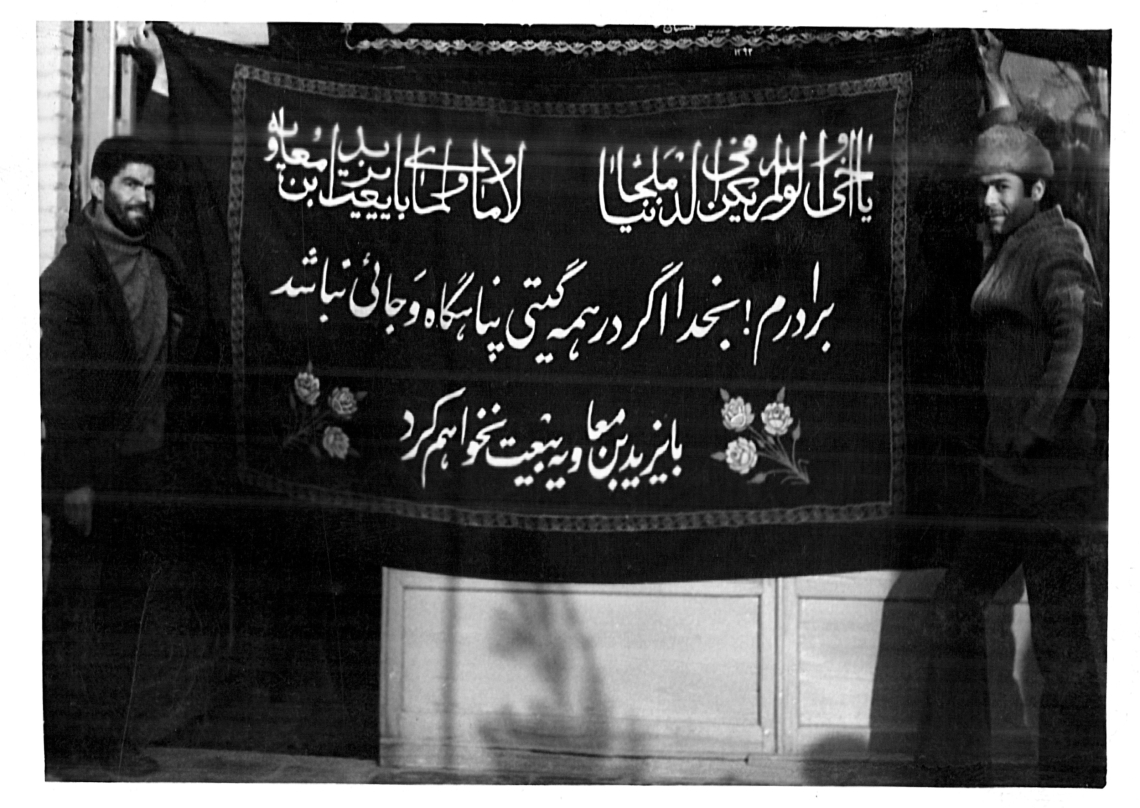 ۱۳۹۲
یا اخی والله لولم یکن فی الدنیا ملجأ ولا مأوی لما بایعت یزید ابن معاویه
برادرم! بخدا اگر در همه گیتی پناهگاه وَ جائی نباشد
با یزید بن معاویه بیعت نخواهم کرد